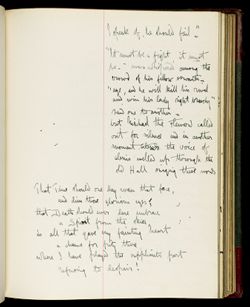 I speak if he should fail."
"It must be a fight, it must
be." was whispered among the
crowd of his fellow servants -
"aye, and he will kill his rival
and win his lady right bravely"
said one to another -
but Richard the Steward called
out for silence and in another
moment the voice of
welled up through the
Hall singing these words
That Time should one day won that face,
and dim those glorious eyes!
that Death should ever dare embrace
from the skies
is all that gave my fainting heart
a chance for pity there
where I have played the suppliants part
refusing to despair!